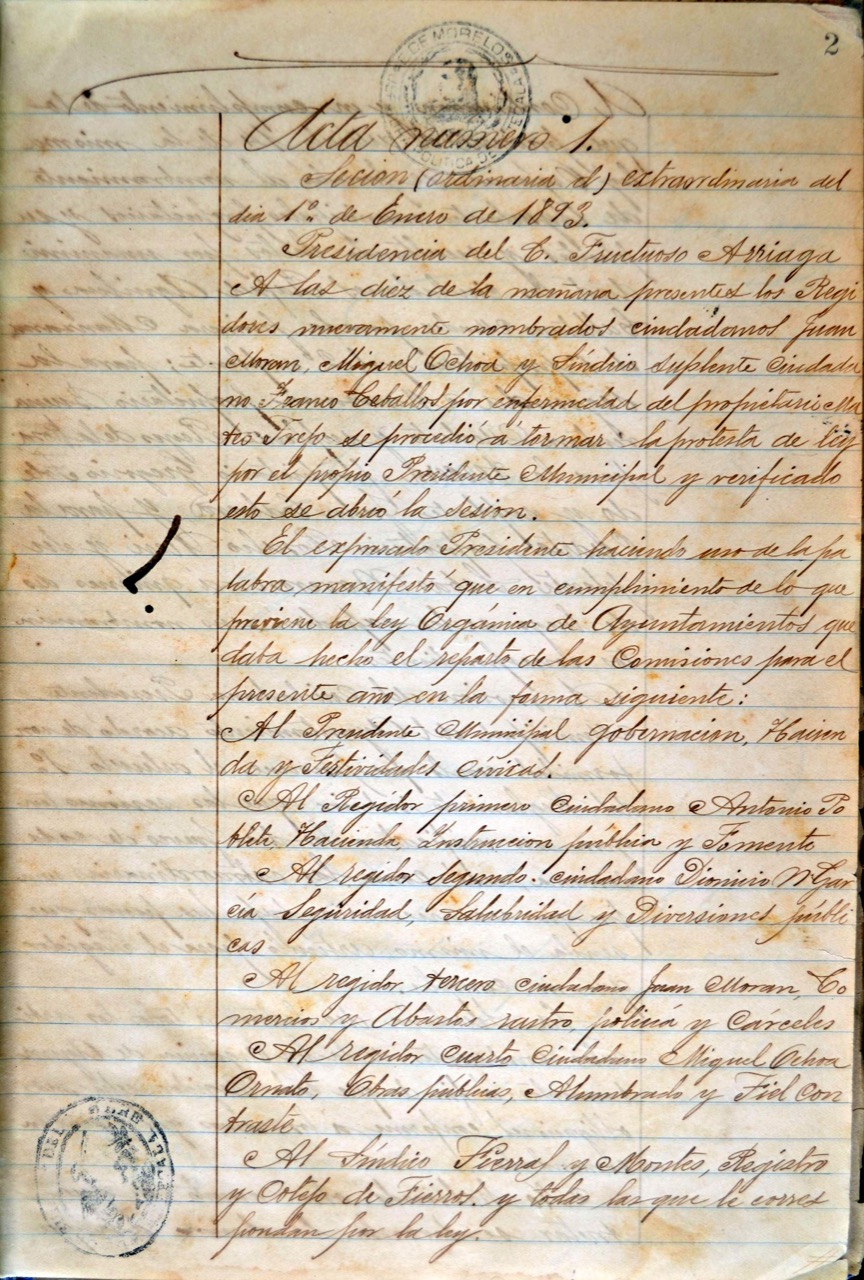 2
DE MORELOS
POLITICA DE
Acta numero 1.
Secion (ordinaria el) extraordinaria del
dia 1º de Enero de 1893.
Presidencia del C. Fructuoso Arriaga
A las diez de la mañana presentes los Regi
dores nuevamente nombrados ciudadanos Juan
Moran, Miguel Ochoa y Síndico suplente Ciudada
no Franco Ceballos por enfermedad del propietario Ma
teo Trejo se procedió á tormar la protesta de ley
por el propio Presidente Municipal y verificado
esto se abrió la sesion.
El expresado Presidente haciendo uso de la pa
labra manifestó que en cumplimiento de lo que
previene la ley Orgánica de Ayuntamientos que
daba hecho el reparto de las Comisiones para el
presente año en la forma siguiente:
Al Presidente Municipal gobernacion, Hacien
da y Festividades cívicas.
Al Regidor primero ciudadano Antonio Po
blete Hacienda Instruccion pública y Fomento
Al regidor segundo. ciudadano Dionicio N Gar
cía Seguridad, Salubridad y Diversiones públi
cas
Al regidor tercero ciudadano Juan Moran, Co
mercios y Abasto, rastro, policía y Cárceles
Al regidor cuarto ciudadano Miguel Ochoa
Ornato, Obras públicas, Alumbrado y Fiel Con
traste
Al Síndico Tierras y Montes, Registro
y Cotejo de Fierros. y todas las que le corres
pondan por la ley.